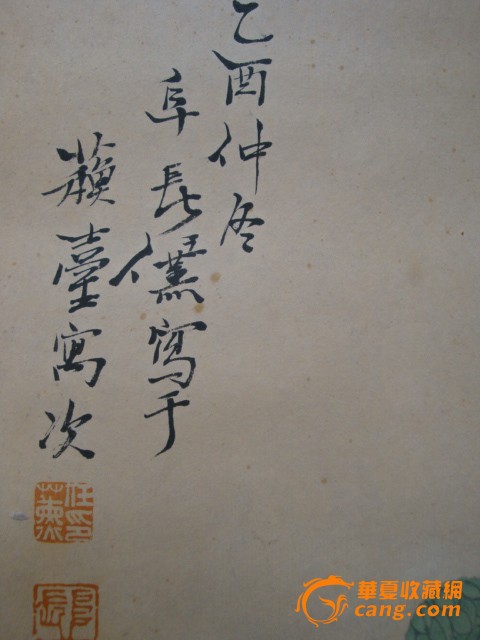 乙酉仲冬
阜長任薰寫于
蘇臺寓次
阜長
華夏收藏網
cang.com